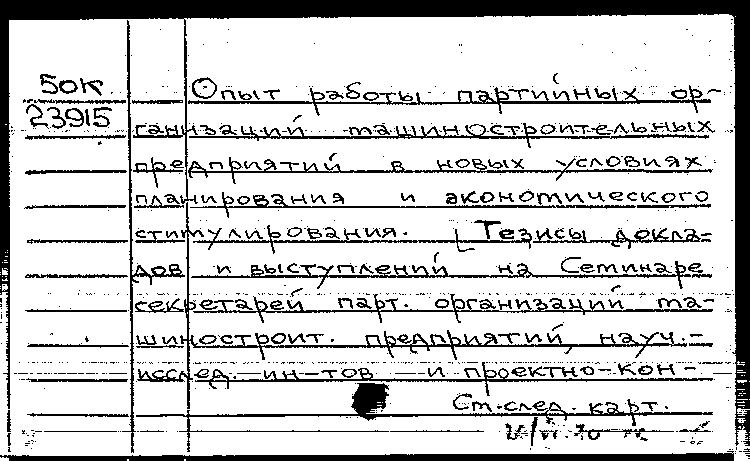 50к
23915
Опыт работы партийных ор-
ганизаций машиностроительных
предприятий в новых условиях
планирования и экономического
стимулирования. [Тезисы докла-
дов и выступлений на Семинаре
секретарей парт. организаций ма-
шиностроит. предприятий, науч.-
исслед. ин-тов и проектно-кон-
См. след. карт.